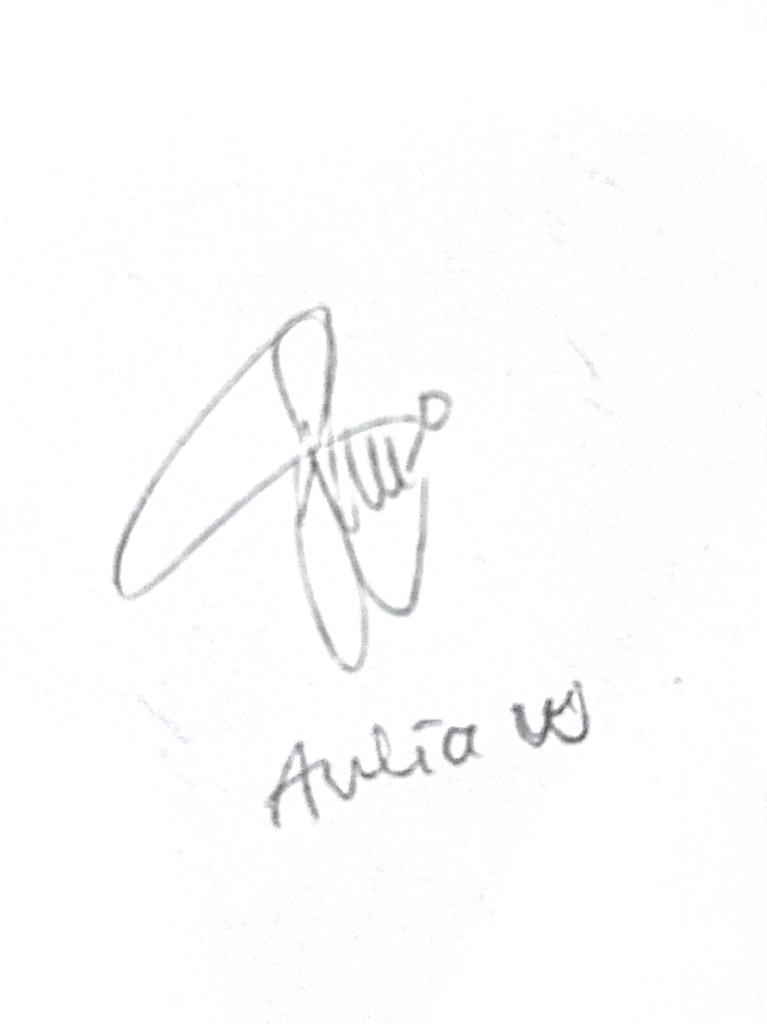 Aulia W